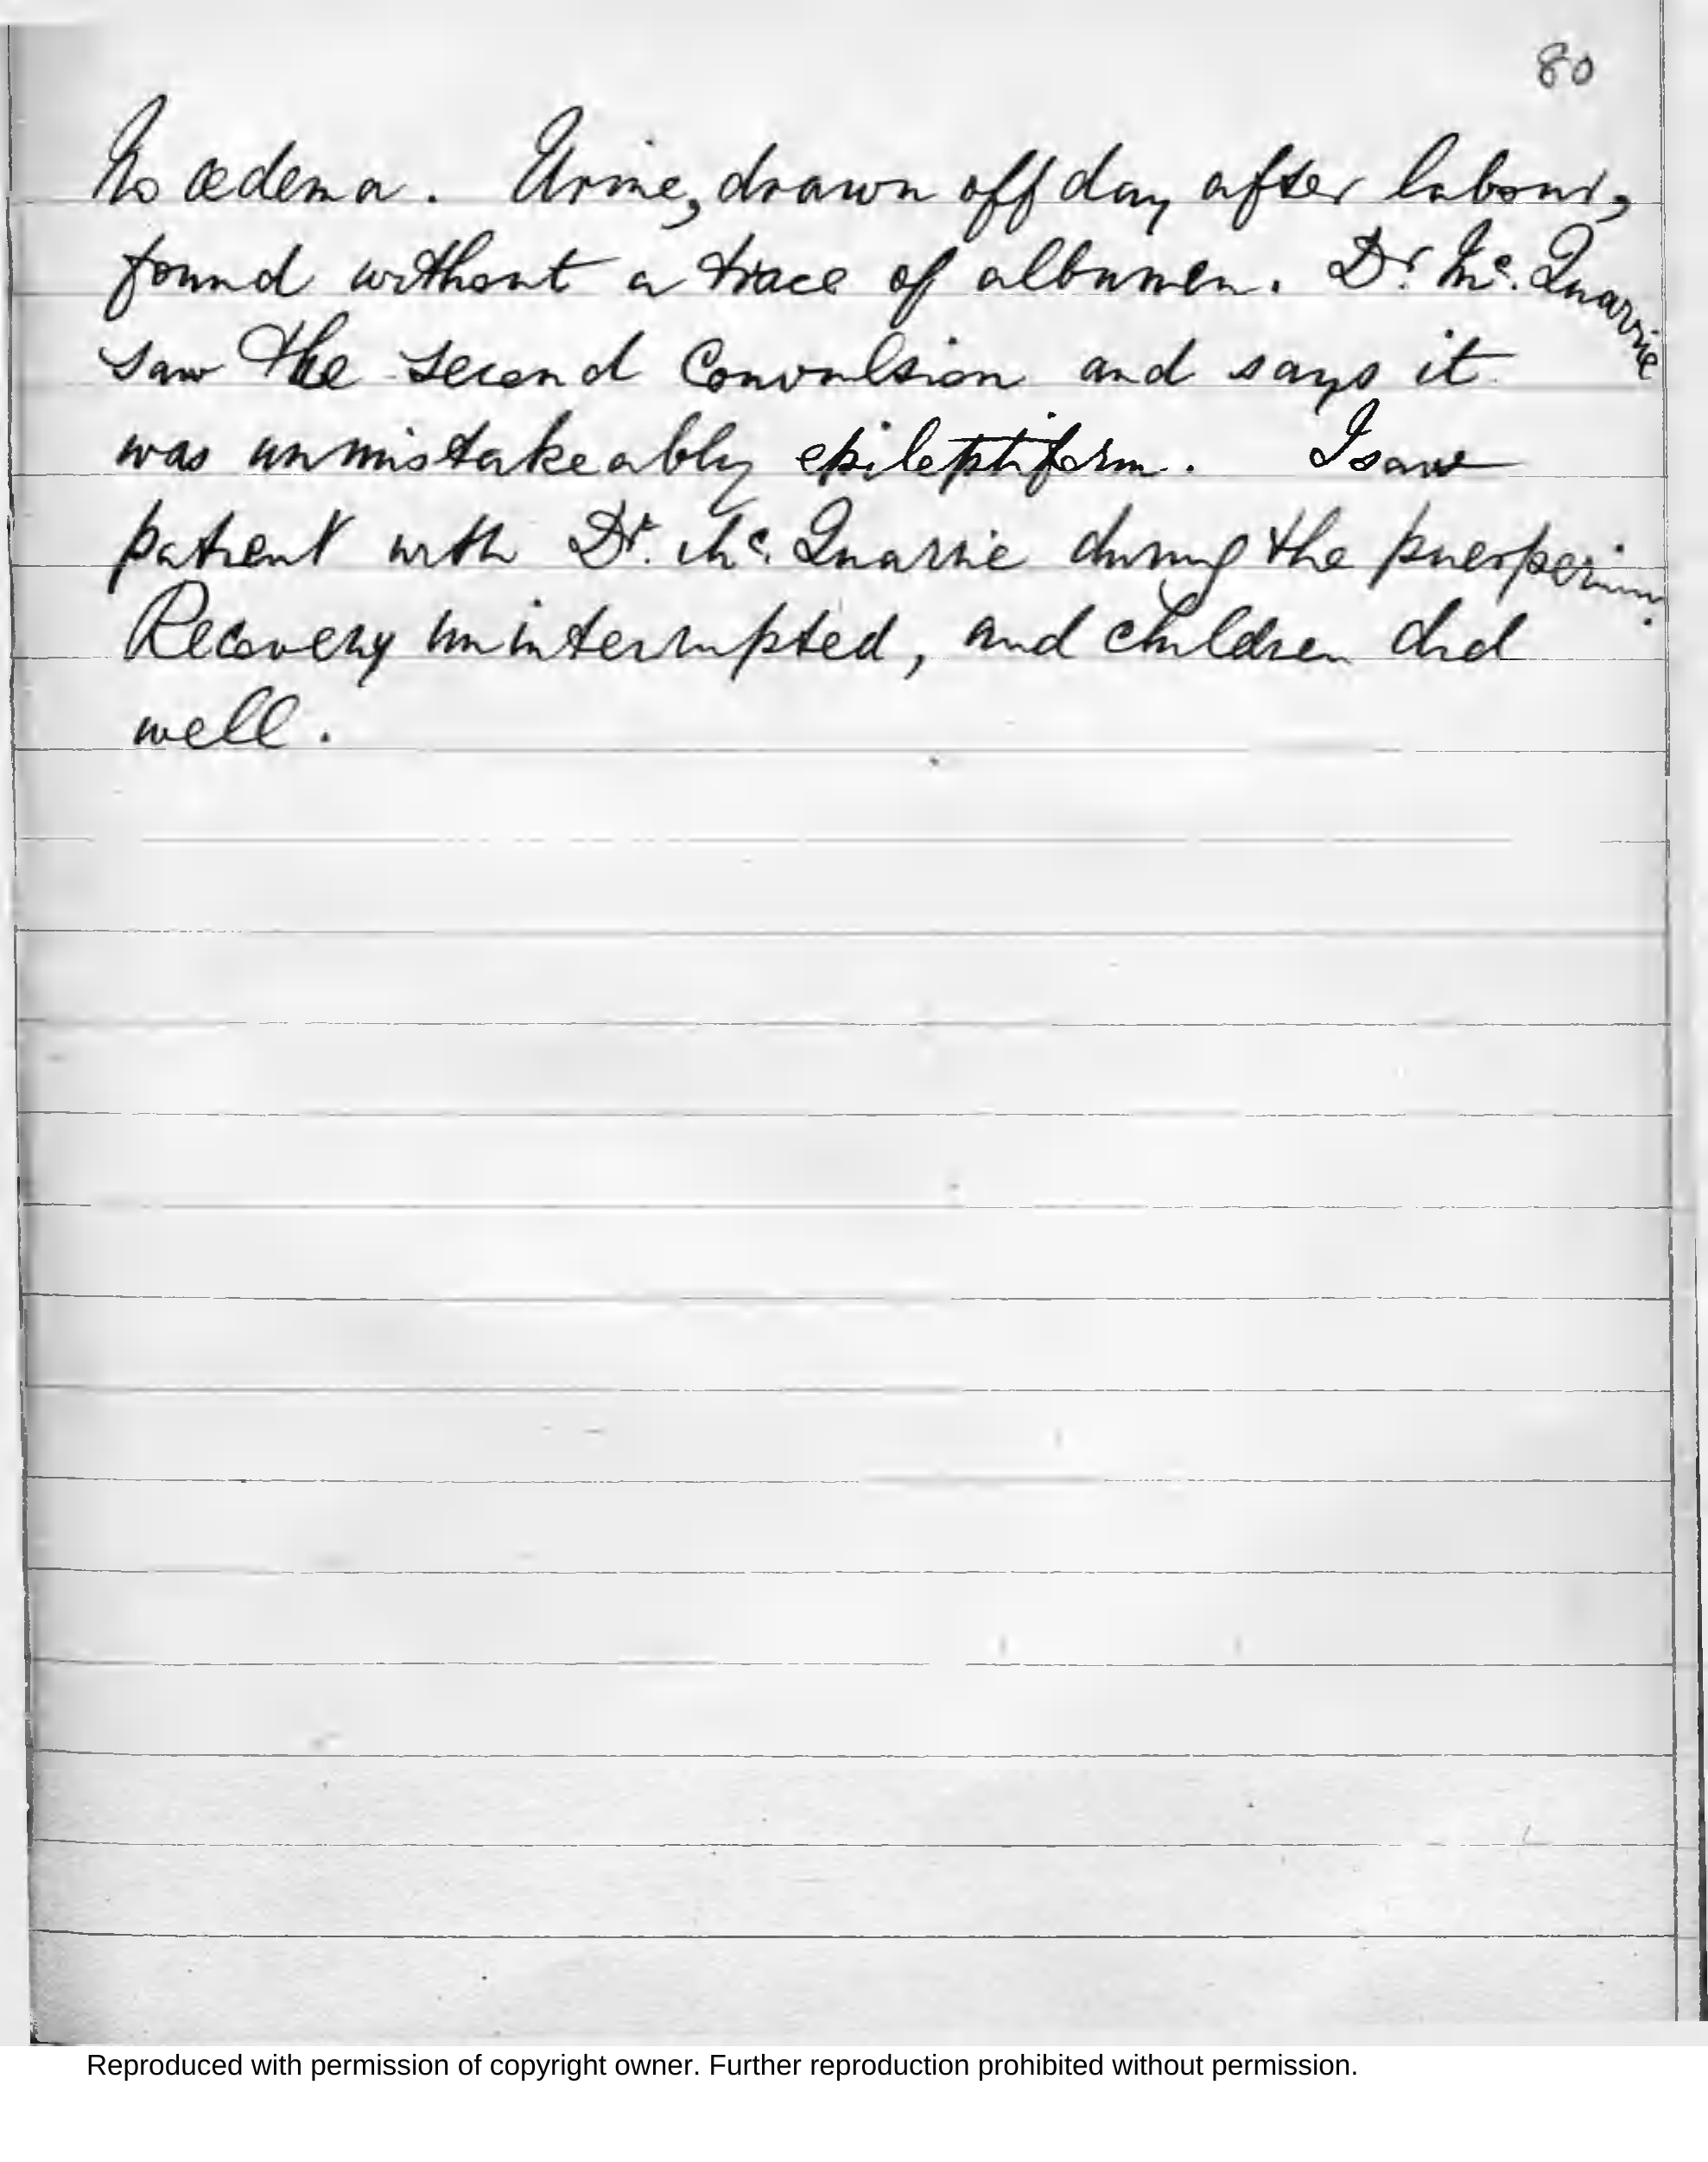 80
No œdema. Urine, drawn off day after labour,
found without a trace of albumen. Dr. Mc. Quarrie
saw the second Convulsion and says it
was unmistakeably epileptiform. I saw
patient with Dr. Mc. Quarrie during the puerperium.
Recovery uninterrupted, and children did
well.
Reproduced with permission of copyright owner. Further reproduction prohibited without permission.